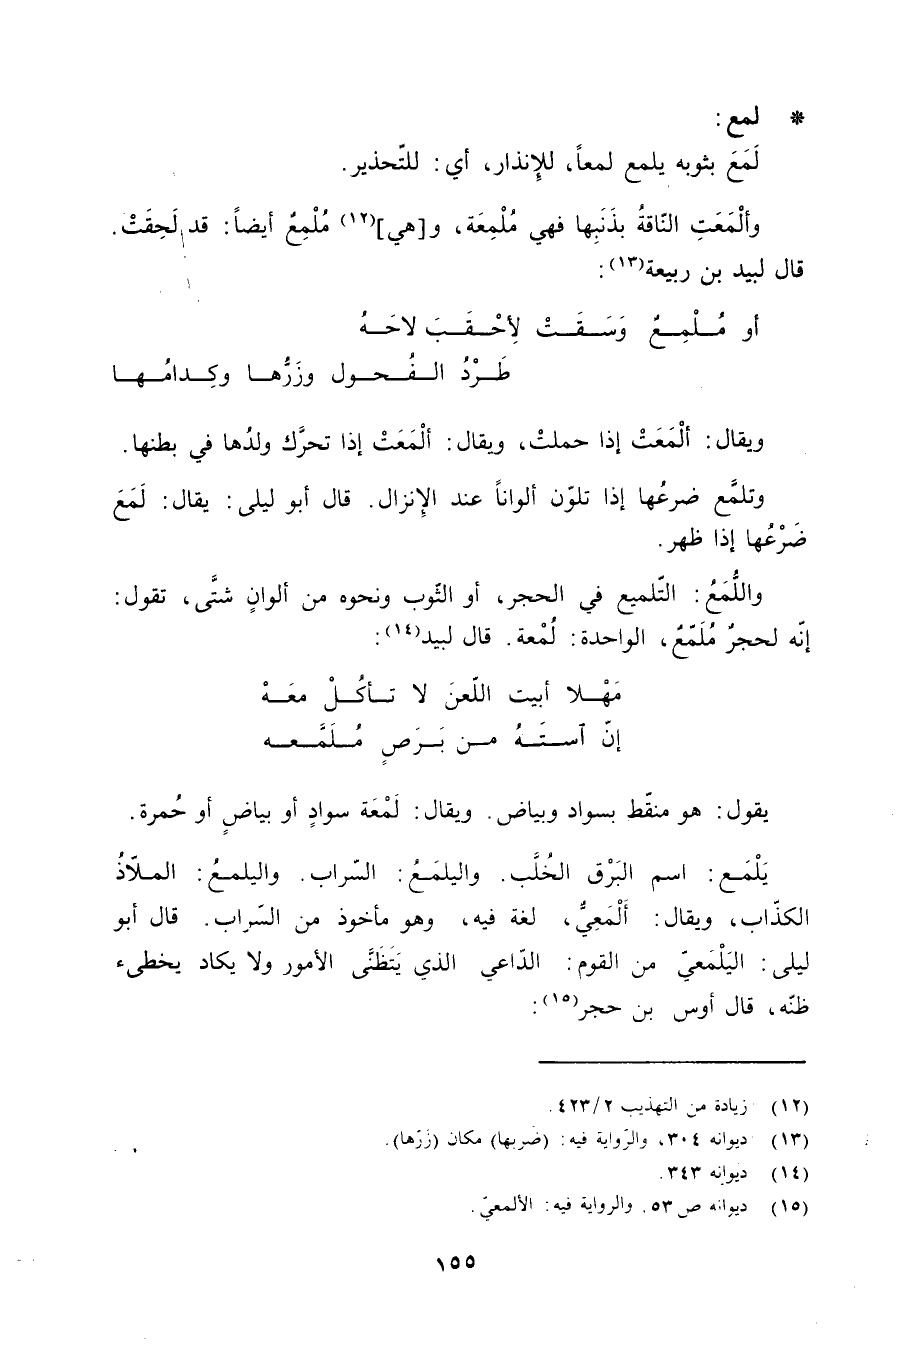 * لمع :
لَمَعَ بثوبه يلمع لمعاً، للإنذار، أي : للتّحذير.
وألْمَعَتِ النّاقةُ بذَنَبِها فهي مُلْمِعَة، و[هي](١٢) مُلْمِعٌ أيضاً: قد لَحِقَتْ.
قال لبيد بن ربيعة(١٣) :
أو مُـلْمِـعٌ وَسَـقَـتْ لِأحْـقَـبَ لاحَـهُ
طَـرْدُ الـفُـحـول وزَرُّهـا وكِـدامُـهـا
ويقال : ألْمَعَتْ إذا حملتْ، ويقال : ألْمَعَتْ إذا تحرَّك ولدُها في بطنها.
وتلمَّع ضرعُها إذا تلوّن ألواناً عند الإنزال. قال أبو ليلى : يقال : لَمَعَ
ضَرْعُها إذا ظهر.
واللُّمَعُ : التّلميع في الحجر، أو الثّوب ونحوه من ألوانٍ شتَّى، تقول :
إنّه لحجرٌ مُلَمَّعٌ، الواحدة : لُمْعة. قال لبيد(١٤) :
مَهْـلا أبيت اللّعنَ لا تـأكُـلْ معَـهْ
إنّ آسـتَـهُ مـن بَـرَصٍ مُـلَمَّـعـه
يقول : هو منقّط بسواد وبياض. ويقال : لَمْعَة سوادٍ أو بياضٍ أو حُمرة.
يَلْمَـع : اسم البَرْق الخُلَّب. واليلمَـعُ : السّراب. واليلمـعُ : المـلاّذُ
الكذّاب، ويقال : أَلْمَعِيٌّ، لغة فيه، وهو مأخوذ من السّراب. قال أبو
ليلى : اليَلْمَعيّ من القوم : الدّاعي الذي يَتَظَنَّى الأمور ولا يكاد يخطىء
ظنّه، قال أوس بن حجر(١٥) :
(١٢) زيادة من التهذيب ٤٢٣/٢.
(١٣) ديوانه ٣٠٤، والرّواية فيه : (ضربها) مكان (زَرّها).
(١٤) ديوانه ٣٤٣.
(١٥) ديوانه ص ٥٣. والرواية فيه : الألمعيّ.
١٥٥